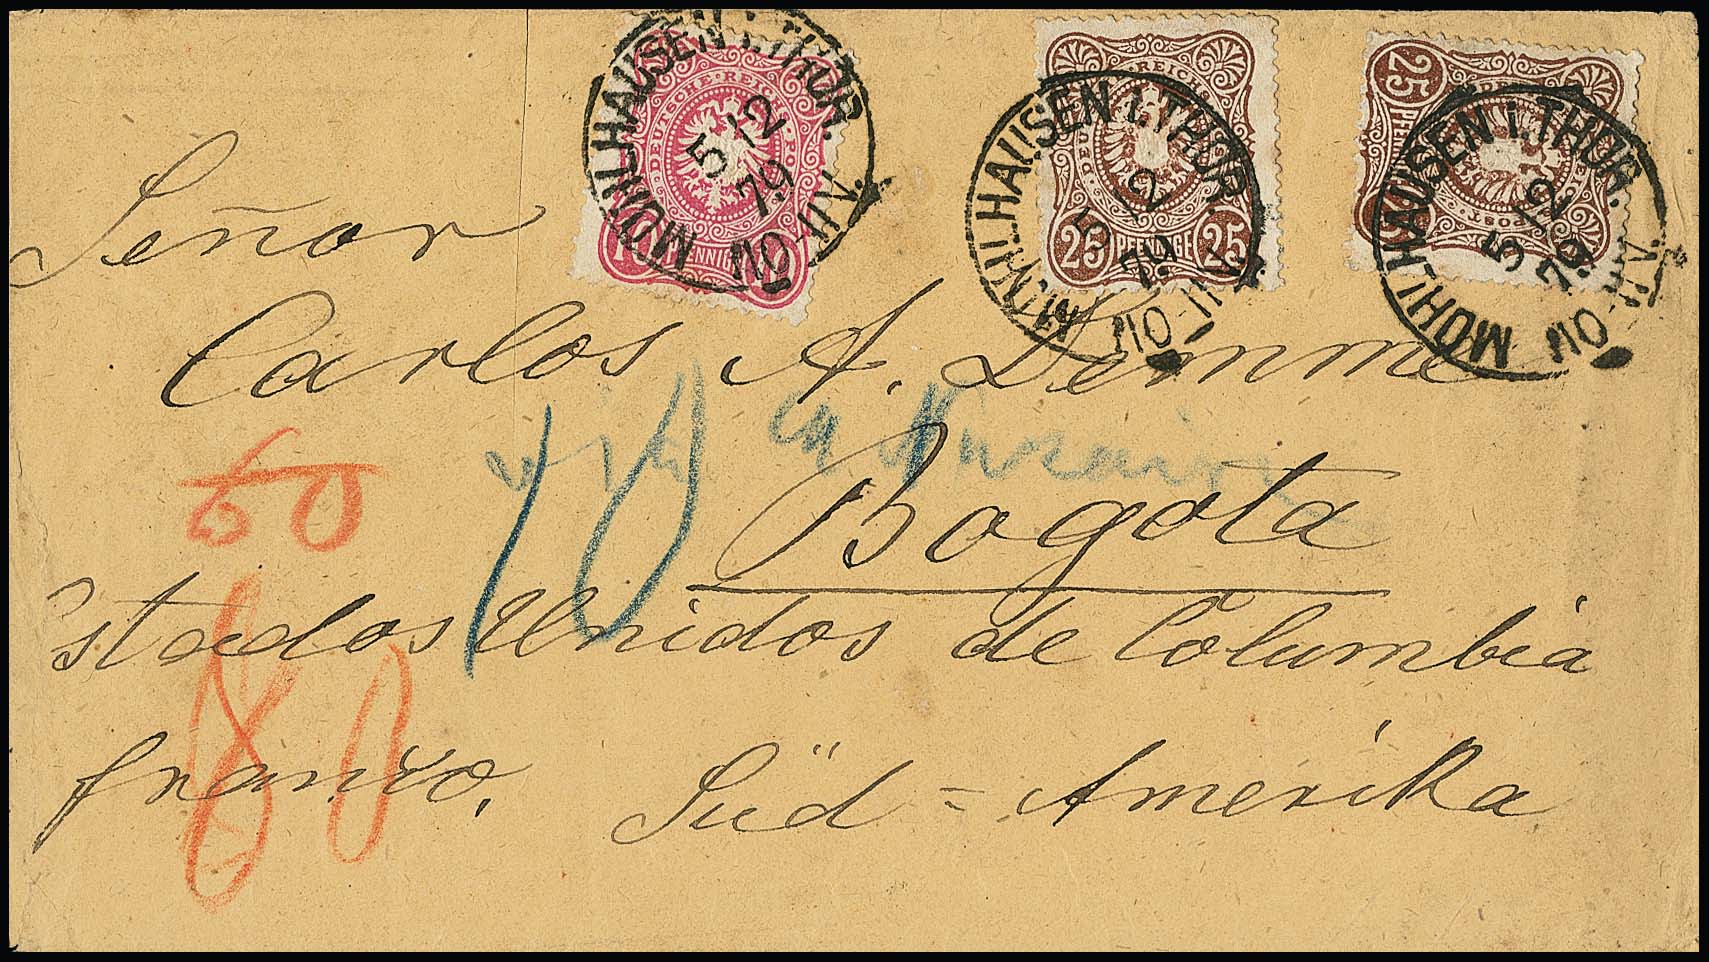 MÜHLHAUSEN I. THÜR.
5 12
79
DEUTSCHE REICHS-POST
10 PFENNIG
MÜHLHAUSEN I. THÜR.
5 12
79
REICHS
25 PFENNIGE 25
MÜHLHAUSEN I. THÜR.
5 12
79
25
Señor
Carlos A. Demme
via
10
Bogota
60
Estados Unidos de Columbia
80
franco.
Süd = Amerika